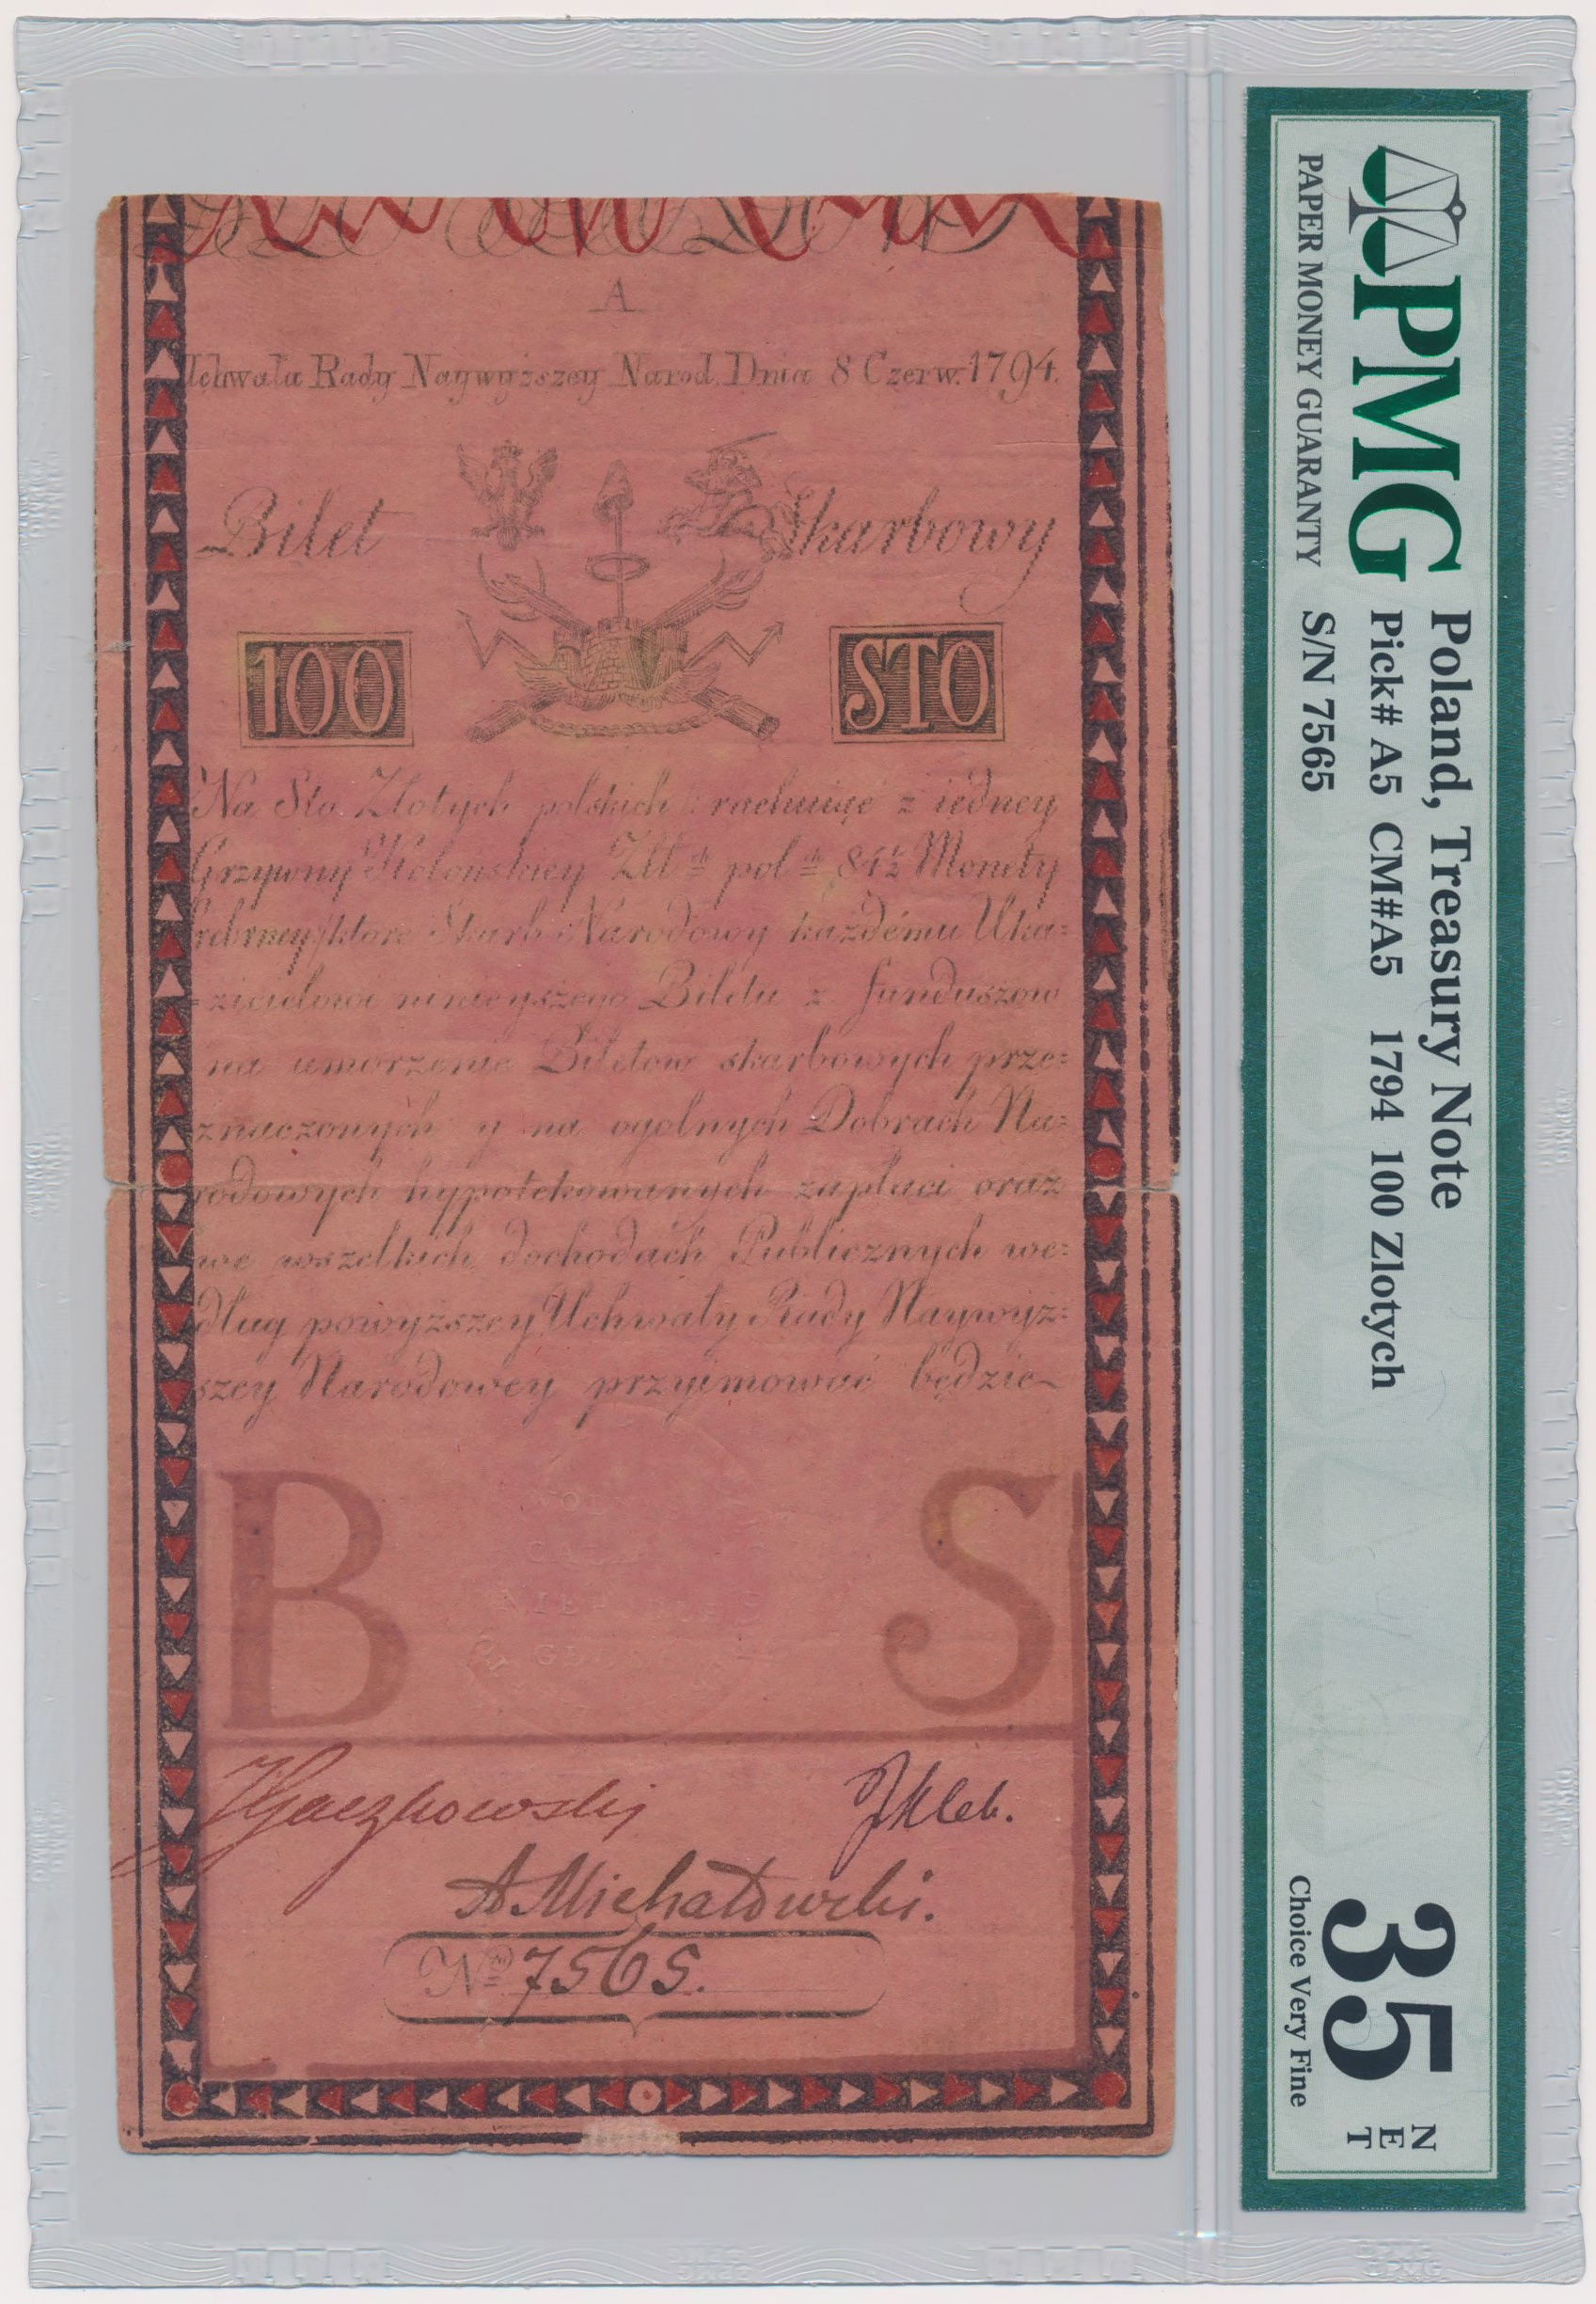 A
Uchwała Rady Naywyższey Narod. Dnia 8 Czerw. 1794.
Bilet Skarbowy
100 STO
Na Sto Złotych polskich : rachuiąc z iedney
Grzywny Kolonskiey Złt ch pol ch 84½ Monety
srebrney/ktore Skarb Narodowy każdému Uka=
=zicielowi ninieyszégo Biletu z funduszow
na umorzenie Biletow skarbowych prze=
znaczonych y na ogolnych Dobrach Na=
rodowych hypotekowanych zapłaci oraz
we wszelkich dochodach Publicznych we=
dług powyższey Uchwały Rady Naywyż=
szey Narodowey przyimować będzie
B S
A Michałowski.
Nro 7565.
PMG
PAPER MONEY GUARANTY
Poland, Treasury Note
Pick# A5 CM#A5 1794 100 Zlotych
S/N 7565
35 NET
Choice Very Fine